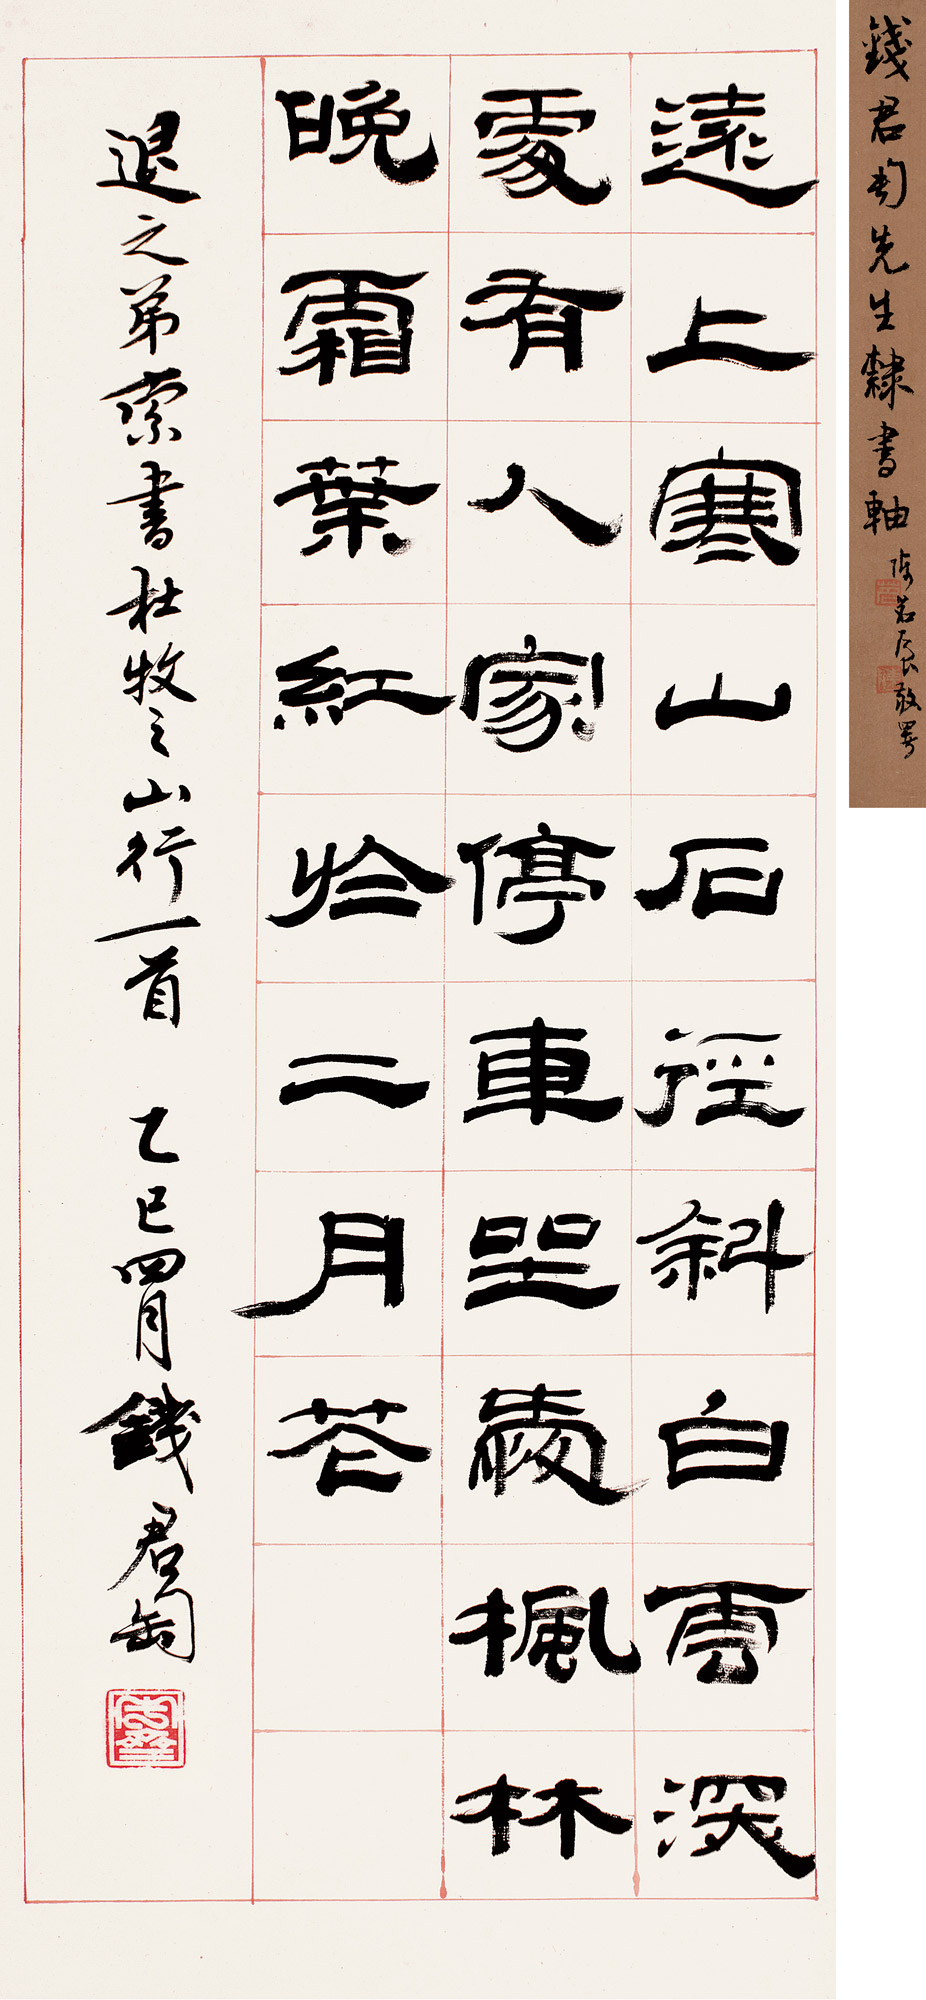 錢君匋先生隸書軸
陳茗屋敬署
遠上寒山石徑斜白雲深
處有人家停車坐愛楓林
晚霜葉紅於二月花
退之弟索書杜牧之山行一首 乙巳四月錢君匋